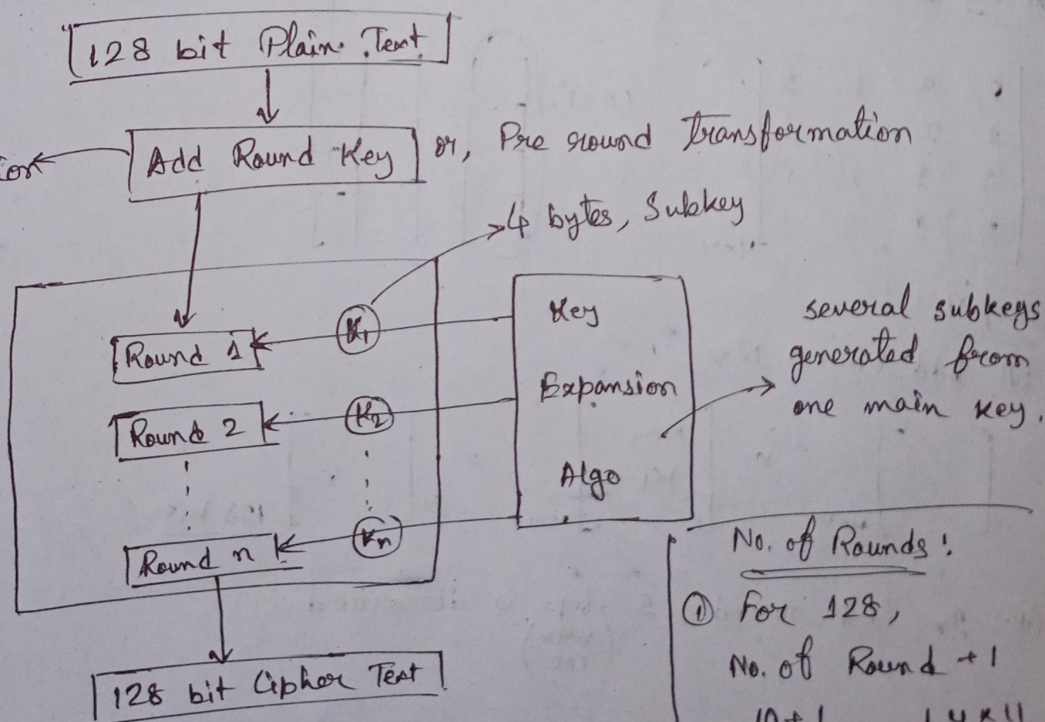 128 bit Plain Text
Add Round Key or, Pre round transformation
4 bytes, Subkey
K1
Round 1
K2
Round 2
Kn
Round n
Key
Expansion
Algo
several subkeys
generated from
one main key.
128 bit Cipher Text
No. of Rounds :
① For 128,
No. of Round + 1
10+1